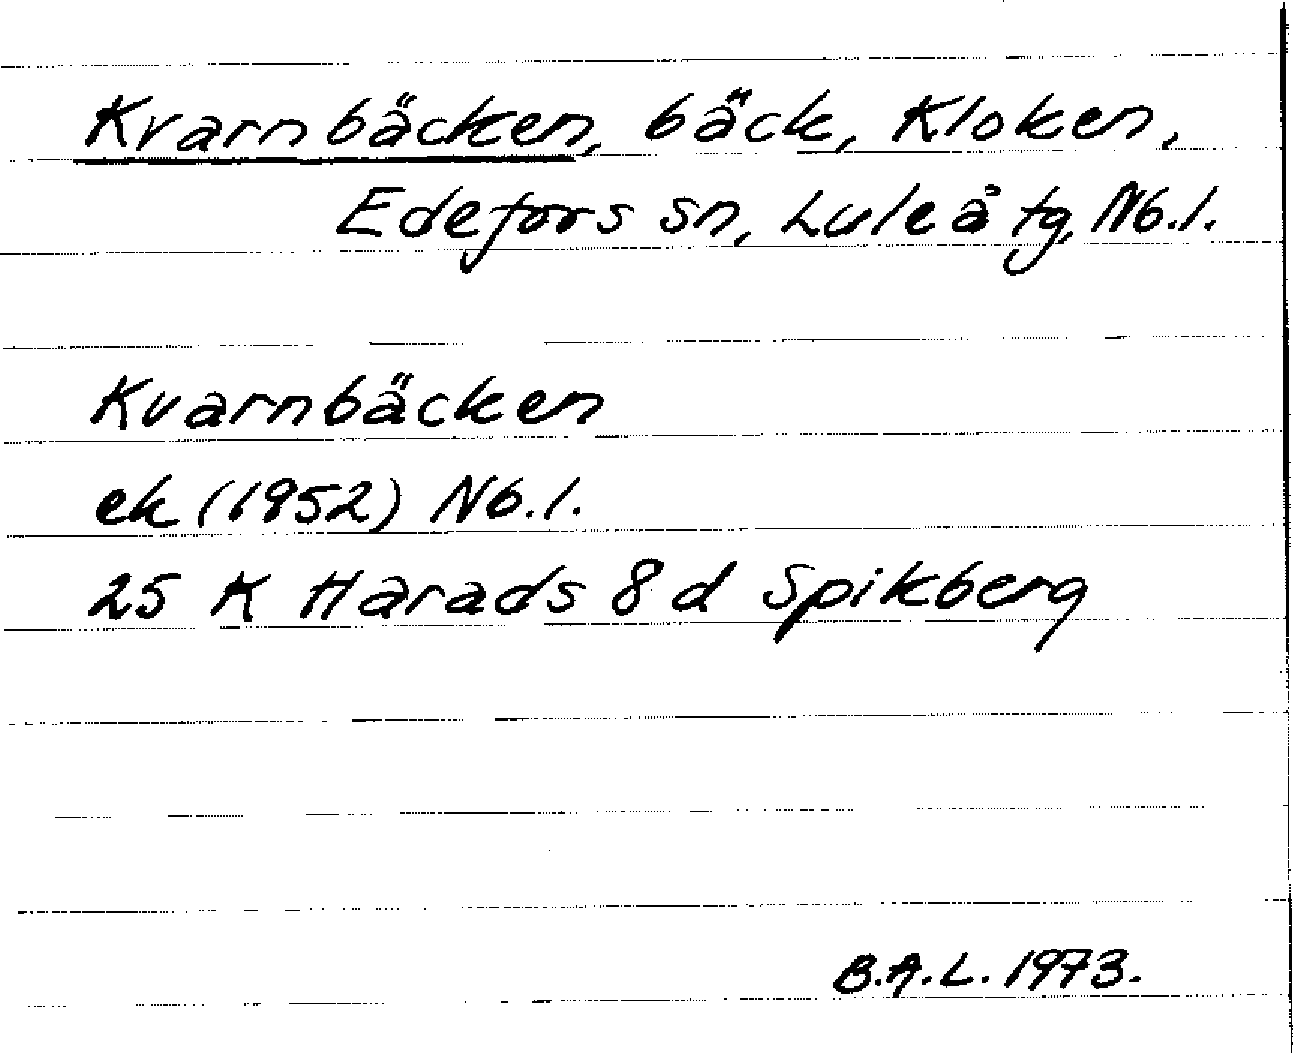 Kvarnbäcken, bäck, Kloken,
Edefors sn, Luleå tg, Nb.l.
Kvarnbäcken
ek (1952) Nb.l.
25 K Harads 8 d Spikberg
B.A.L. 1973.